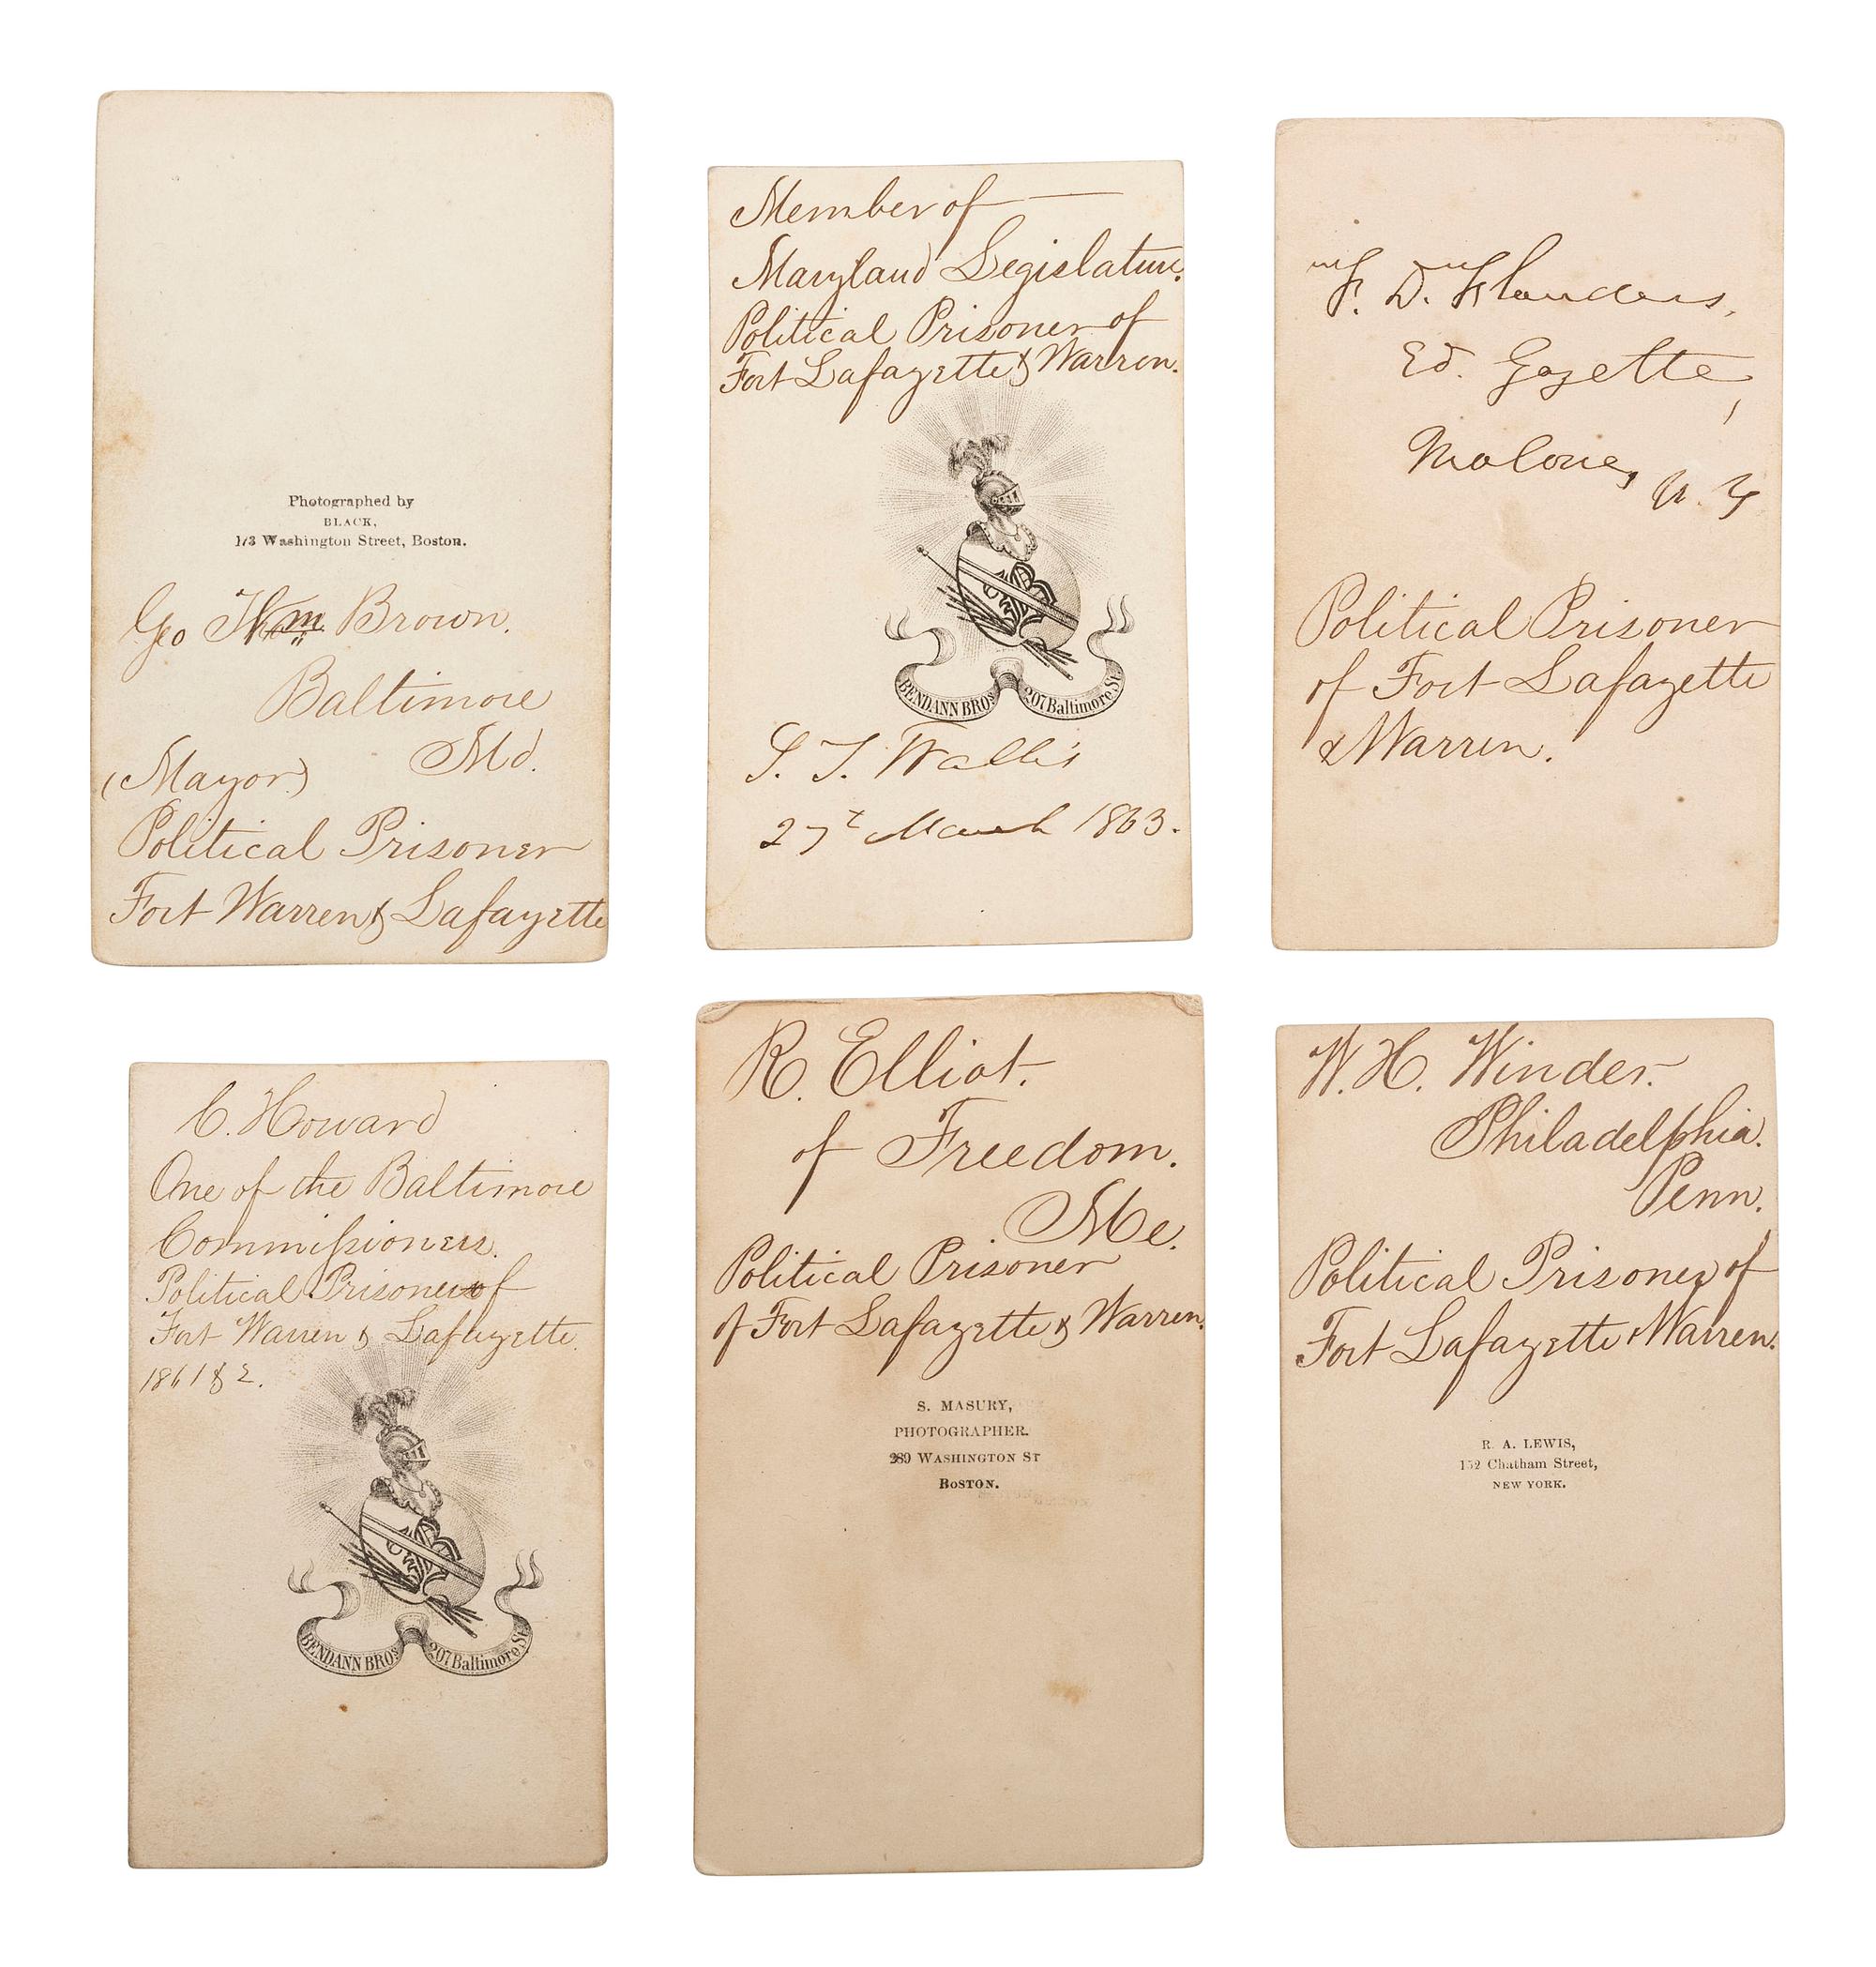 Photographed by
BLACK,
173 Washington Street, Boston.
Geo Wm Brown.
Baltimore
Md.
(Mayor)
Political Prisoner
Fort Warren & Lafayette
Member of
Maryland Legislature.
Political Prisoner of
Fort Lafayette & Warren.
BENDANN BROS. 207 Baltimore St.
S. T. Wallis
27t March 1863.
F. D. Flanders,
Ed. Gazette,
Malone, N. Y
Political Prisoner
of Fort Lafayette
& Warren.
C. Howard
One of the Baltimore
Commissioners.
Political Prisoner of
Fort Warren & Lafayette.
1861 & 2.
BENDANN BROS. 207 Baltimore St.
R. Elliot.
of Freedom.
Me.
Political Prisoner
of Fort Lafayette & Warren.
S. MASURY,
PHOTOGRAPHER.
289 WASHINGTON ST
BOSTON.
W. H. Winder.
Philadelphia.
Penn.
Political Prisoner of
Fort Lafayette & Warren.
R. A. LEWIS,
152 Chatham Street,
NEW YORK.